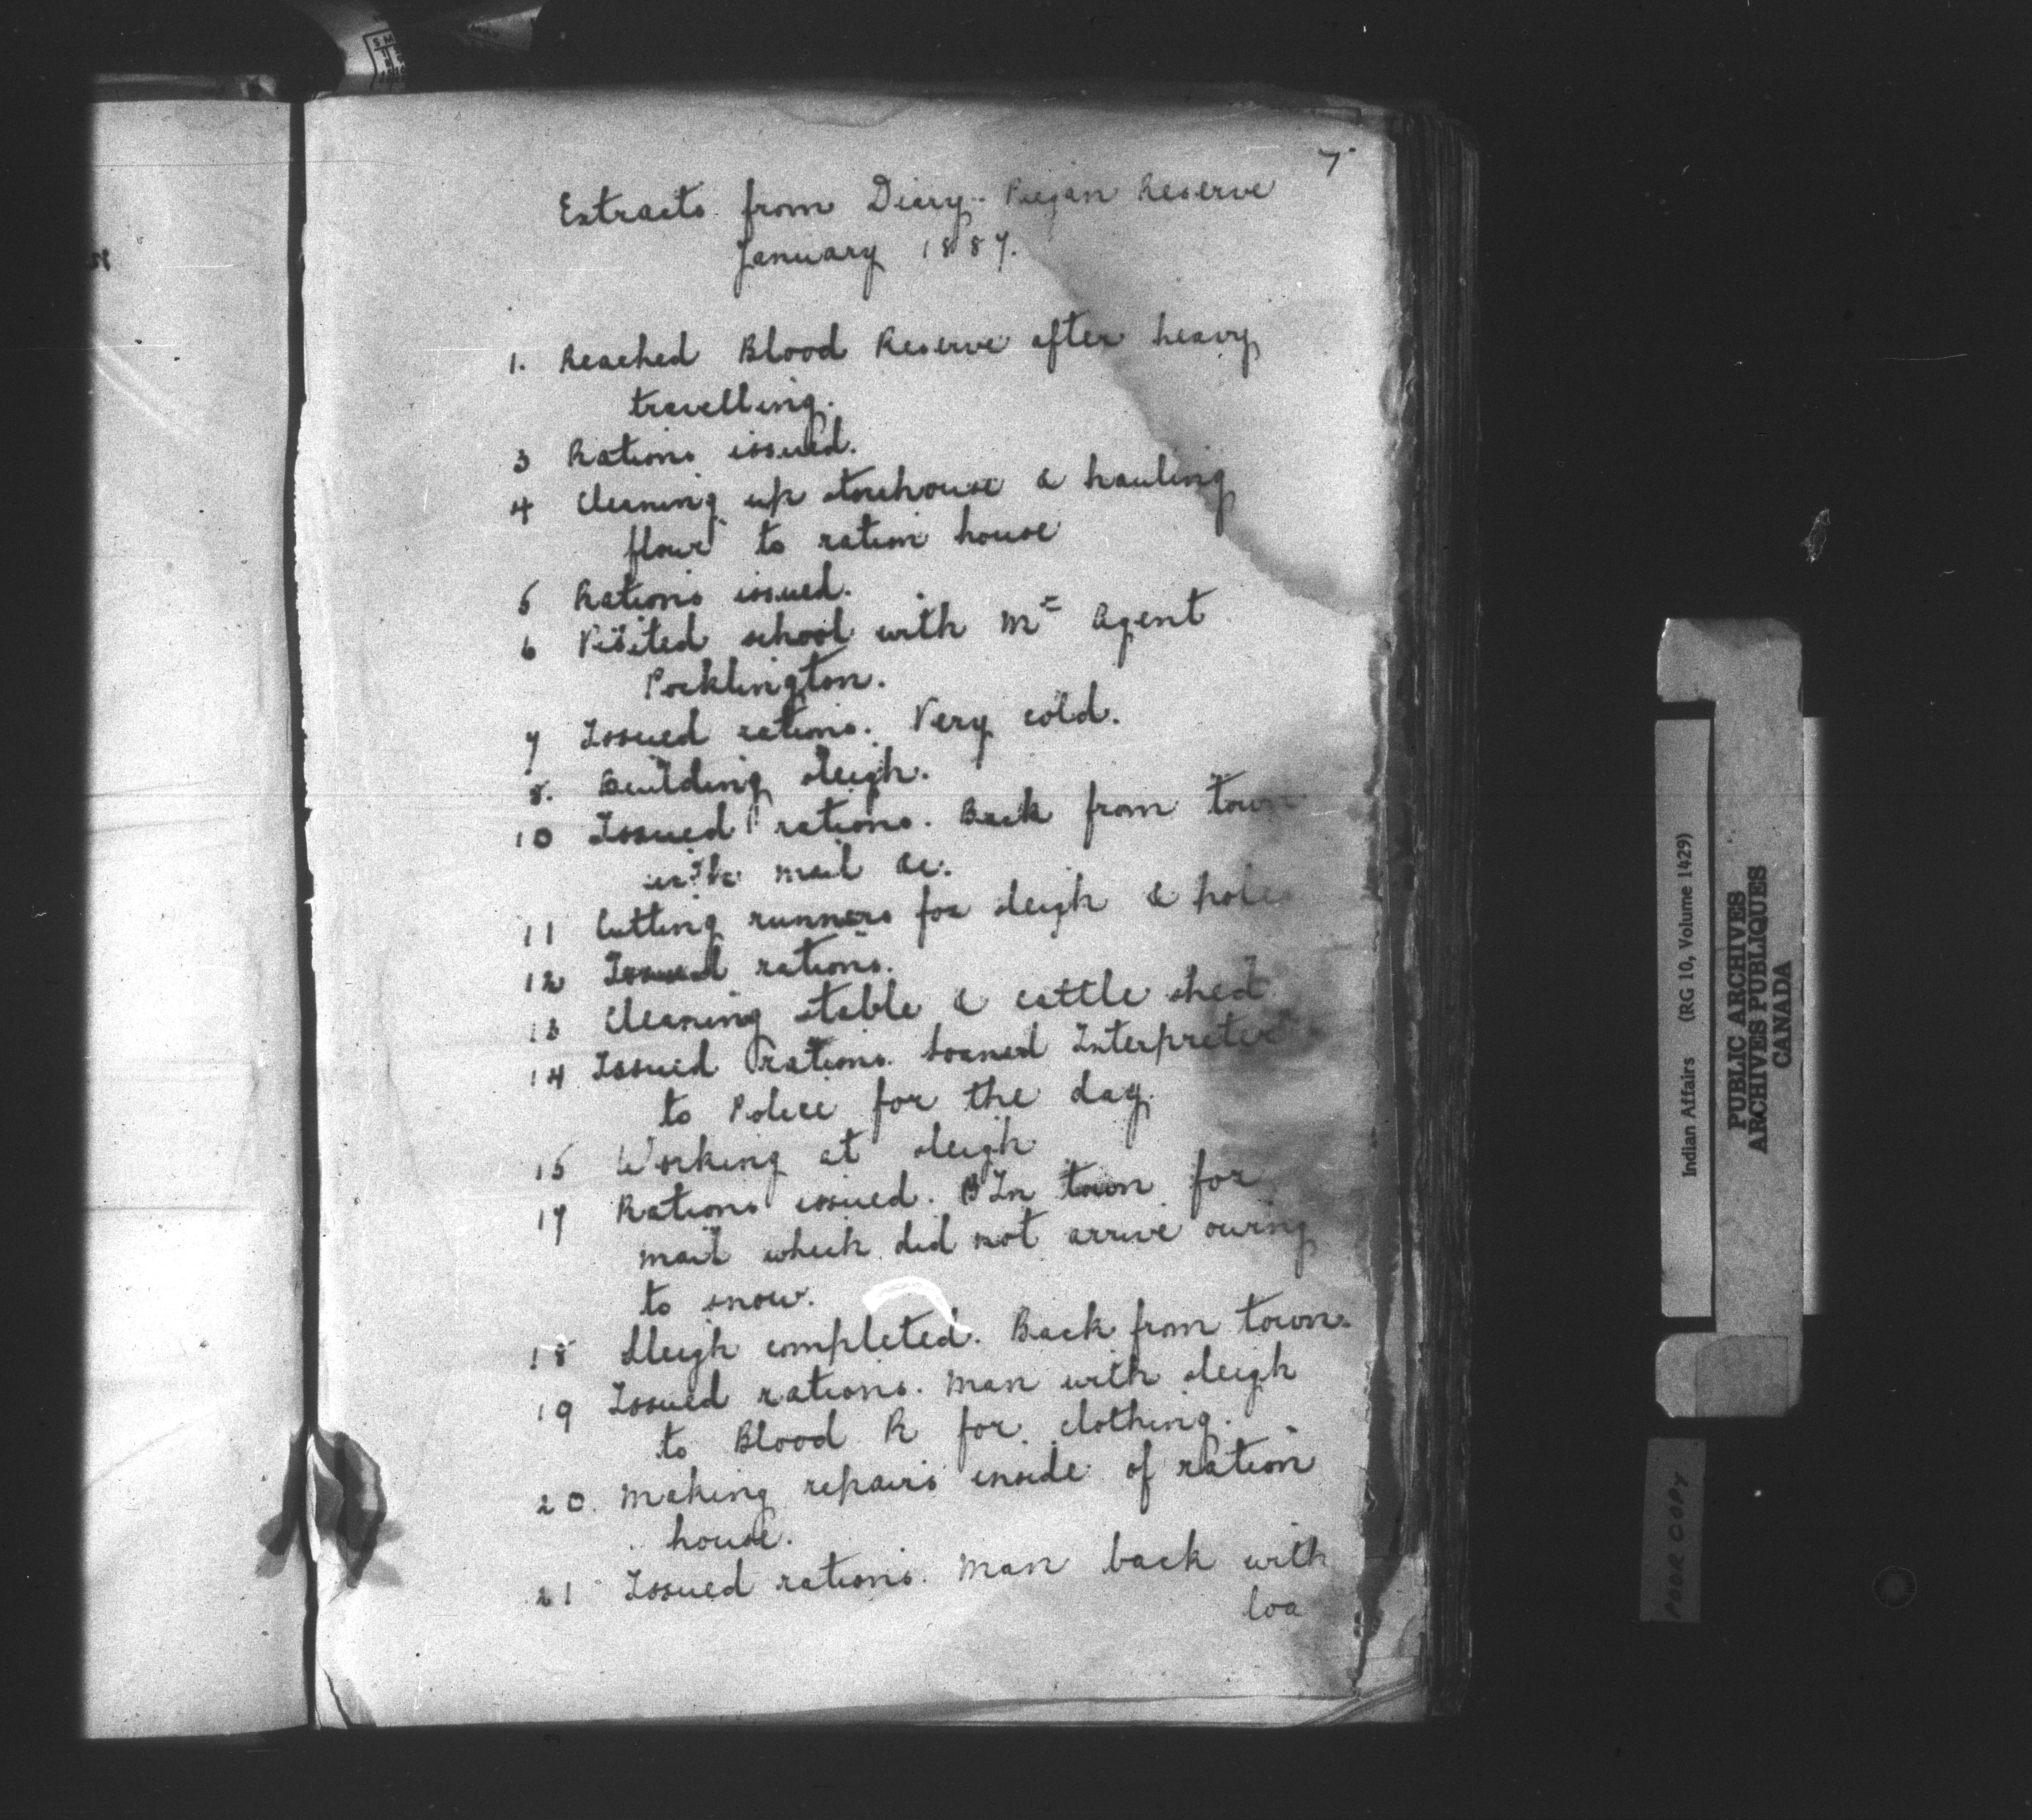 7
Extracts from Diary. Piegan Reserve
January 1887.
1. Reached Blood Reserve after heavy
travelling.
3 Rations issued.
4 Cleaning up storehouse & hauling
flour to ration house
5 Rations issued.
6 Visited school with Mr Agent
Pocklington.
7 Issued rations. Very cold.
8. Building sleigh.
10 Issued rations. Back from town
with mail &c.
11 Cutting runners for sleigh & poles
12 Issued rations.
13 Cleaning stable & cattle shed
14 Issued rations. Loaned Interpreter
to Police for the day.
15 Working at sleigh
17 Rations issued. In town for
mail which did not arrive owing
to snow.
18 Sleigh completed. Back from town.
19 Issued rations. Man with sleigh
to Blood R for clothing.
20. Making repairs inside of ration
house.
21 Issued rations. Man back with
loa
Indian Affairs (RG 10, Volume 1429)
PUBLIC ARCHIVES
ARCHIVES PUBLIQUES
CANADA
POOR COPY